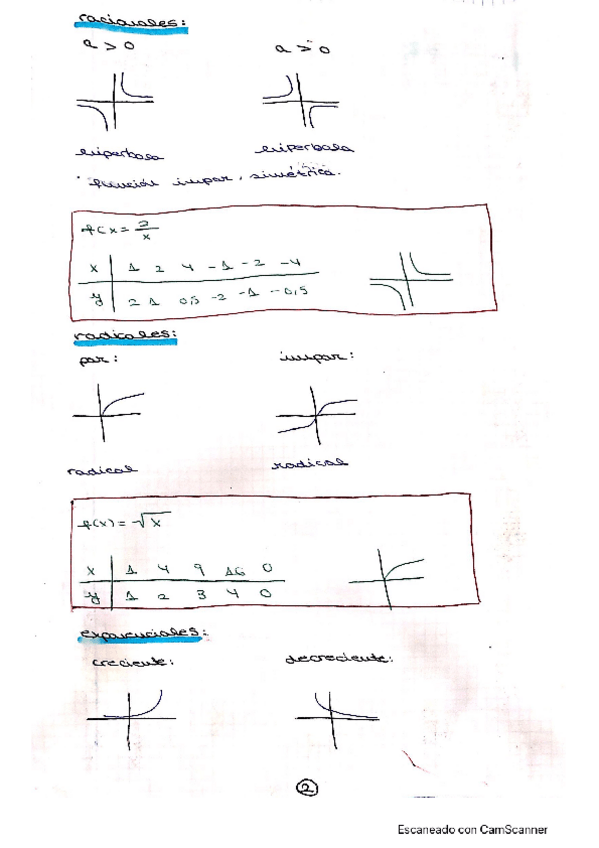 racionales:
a > 0 a > 0
hiperbola hiperbola
función impar, simétrica.
f(x = 2/x
x 1 2 4 -1 -2 -4
y 2 1 0,5 -2 -1 -0,5
radicales:
par: impar:
radical radical
f(x) = √x
x 1 4 9 16 0
y 1 2 3 4 0
exponenciales:
creciente: decreciente:
2
Escaneado con CamScanner